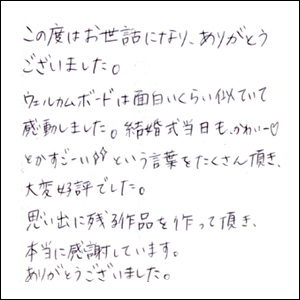 この度はお世話になり、ありがとう
ございました。
ウェルカムボードは面白いくらい似ていて
感動しました。結婚式当日も、かわいー♡
とかすごーい!! という言葉をたくさん頂き、
大変好評でした。
思い出に残る作品を作って頂き、
本当に感謝しています。
ありがとうございました。